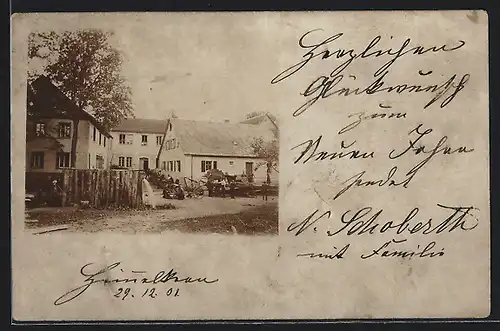 Herzlichen
Glückwunsch
zum
Neuen Jahre
sendet
N. Schoberth
mit Familie
Himmelkron
29. 12. 01.